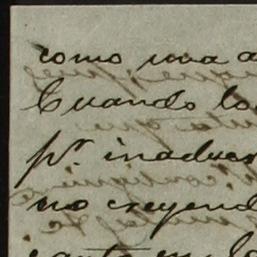 como una a
Cuando lo
pr. inadver
no creyend